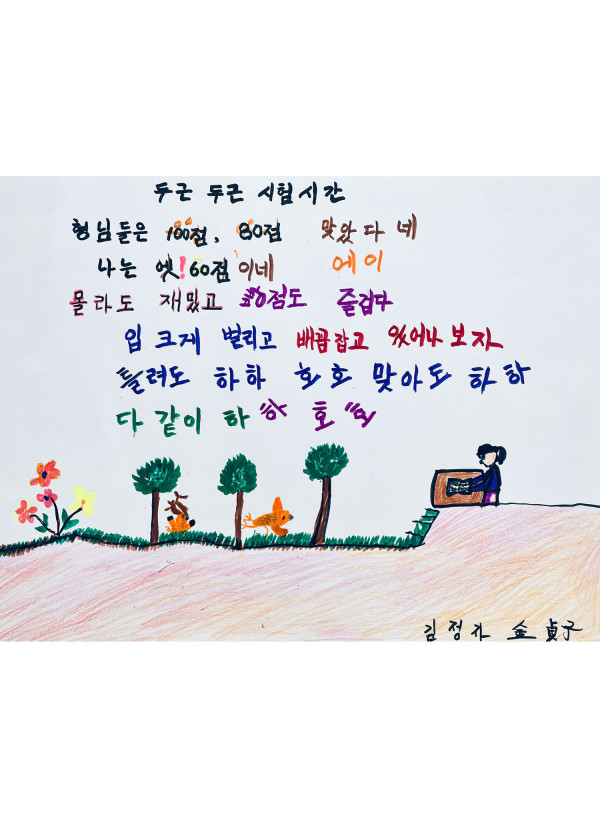 두근 두근 시험시간
형님들은 100점, 80점 맞았다 네
나는 엣!60점이네 에이
몰라도 재밌고 즐겁다
입 크게 벌리고 배꼽잡고 보자
틀려도 하하 호호 맞아도 하하
다 같이 하하 호호
김정자 金貞子